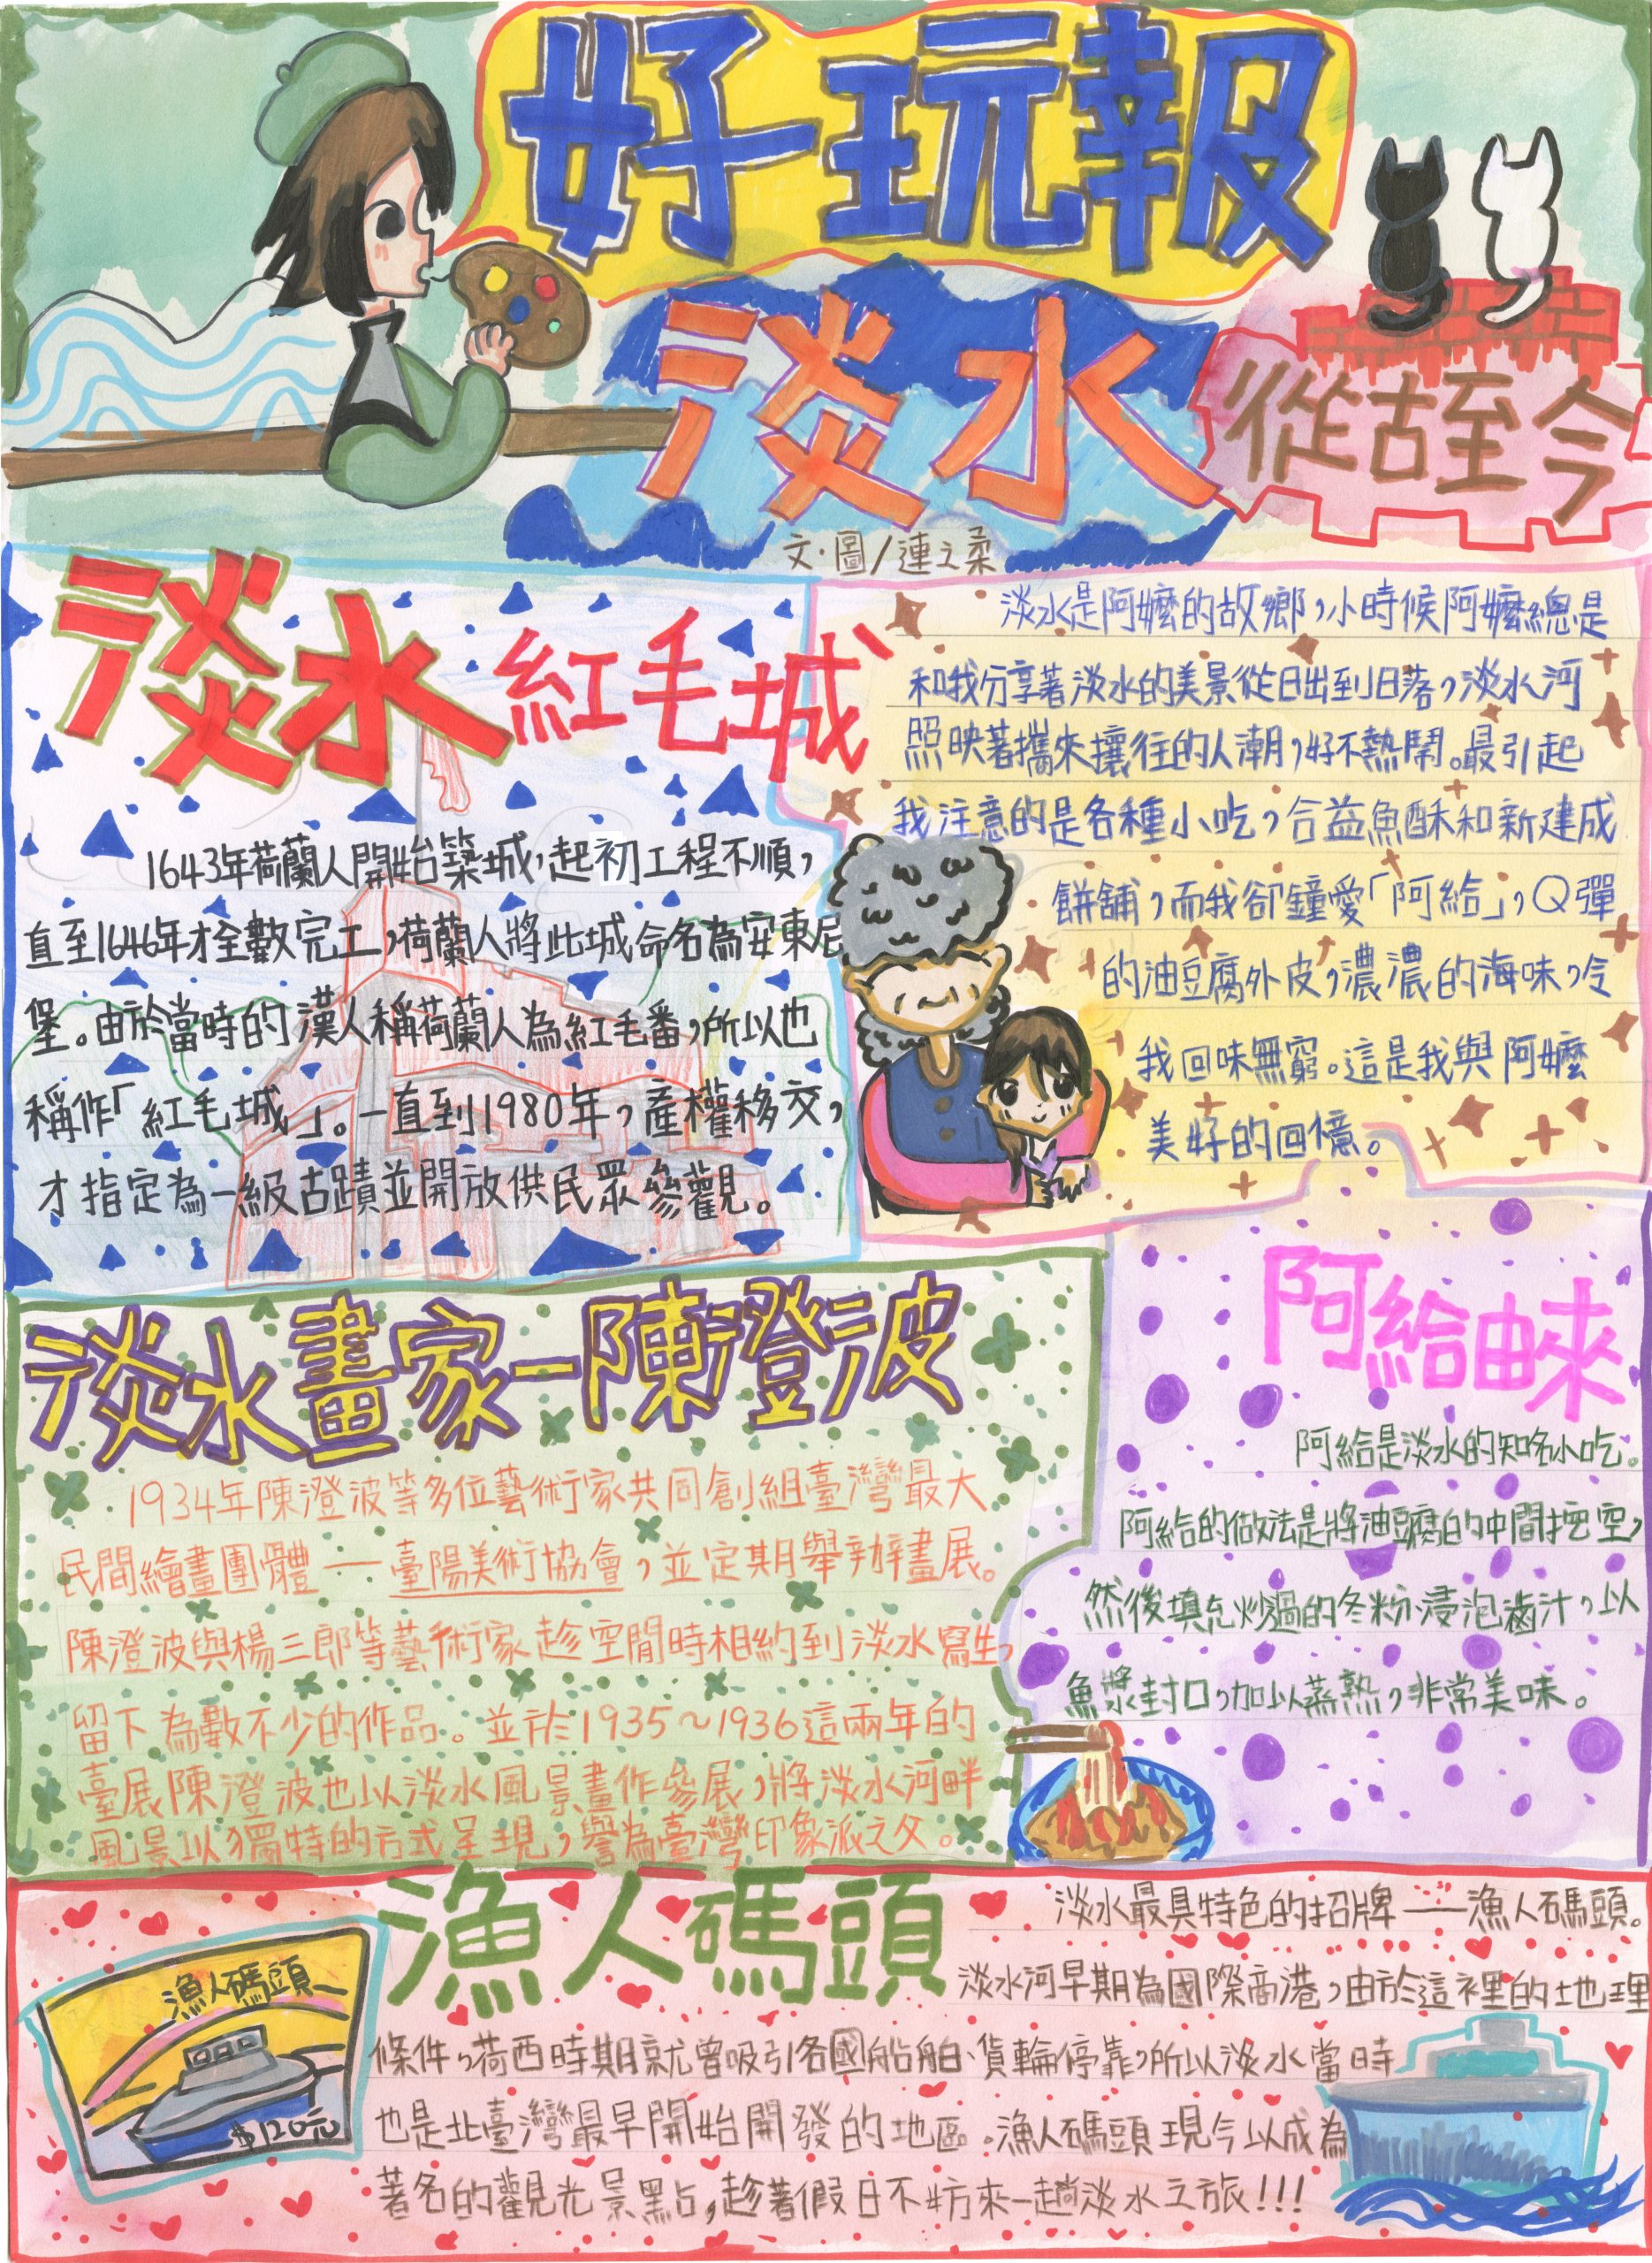 好玩報
淡水
從古至今
文·圖/連之柔
淡水紅毛城
1643年荷蘭人開始築城,起初工程不順,
直至1646年才全數完工,荷蘭人將此城命名為安東尼
堡。由於當時的漢人稱荷蘭人為紅毛番,所以也
稱作「紅毛城」。一直到1980年,產權移交,
才指定為一級古蹟並開放供民眾參觀。
淡水是阿嬤的故鄉,小時候阿嬤總是
和我分享著淡水的美景從日出到日落,淡水河
照映著攜來攘往的人潮,好不熱鬧。最引起
我注意的是各種小吃,合益魚酥和新建成
餅舖,而我卻鐘愛「阿給」,Q彈
的油豆腐外皮,濃濃的海味,令
我回味無窮。這是我與阿嬤
美好的回憶。
淡水畫家—陳澄波
1934年陳澄波等多位藝術家共同創組臺灣最大
民間繪畫團體——臺陽美術協會,並定期舉辦畫展。
陳澄波與楊三郎等藝術家趁空閒時相約到淡水寫生,
留下為數不少的作品。並於1935~1936這兩年的
臺展陳澄波也以淡水風景畫作參展,將淡水河畔
風景以獨特的方式呈現,譽為臺灣印象派之父。
阿給由來
阿給是淡水的知名小吃。
阿給的做法是將油豆腐的中間挖空,
然後填充炒過的冬粉浸泡滷汁,以
魚漿封口,加以蒸熟,非常美味。
漁人碼頭
淡水最具特色的招牌——漁人碼頭。
淡水河早期為國際商港,由於這裡的地理
條件,荷西時期就曾吸引各國船舶、貨輪停靠,所以淡水當時
也是北臺灣最早開始開發的地區。漁人碼頭現今以成為
著名的觀光景點,趁著假日不妨來一趟淡水之旅!!!
漁人碼頭
$120元